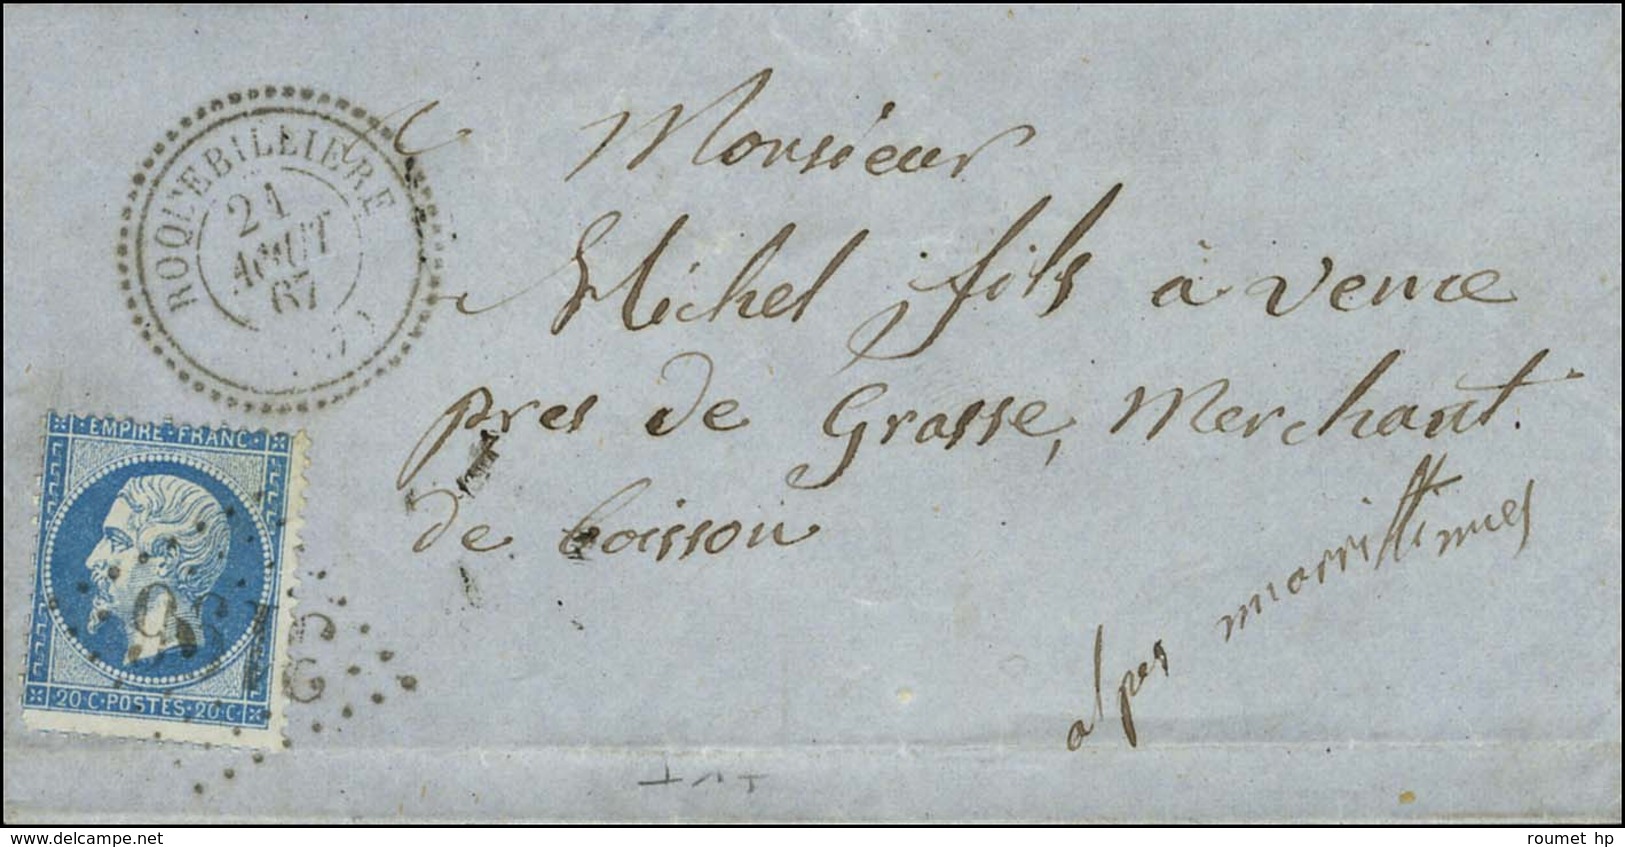 ROQUEBILLIÈRE
21
AOUT
67
Monsieur
Michel fils à Vence
pres de Grasse, Merchant
de boisson
alpes marrittimes
EMPIRE · FRANC ·
20 · C · POSTES · 20 · C ·
www.delcampe.net
roumet hp